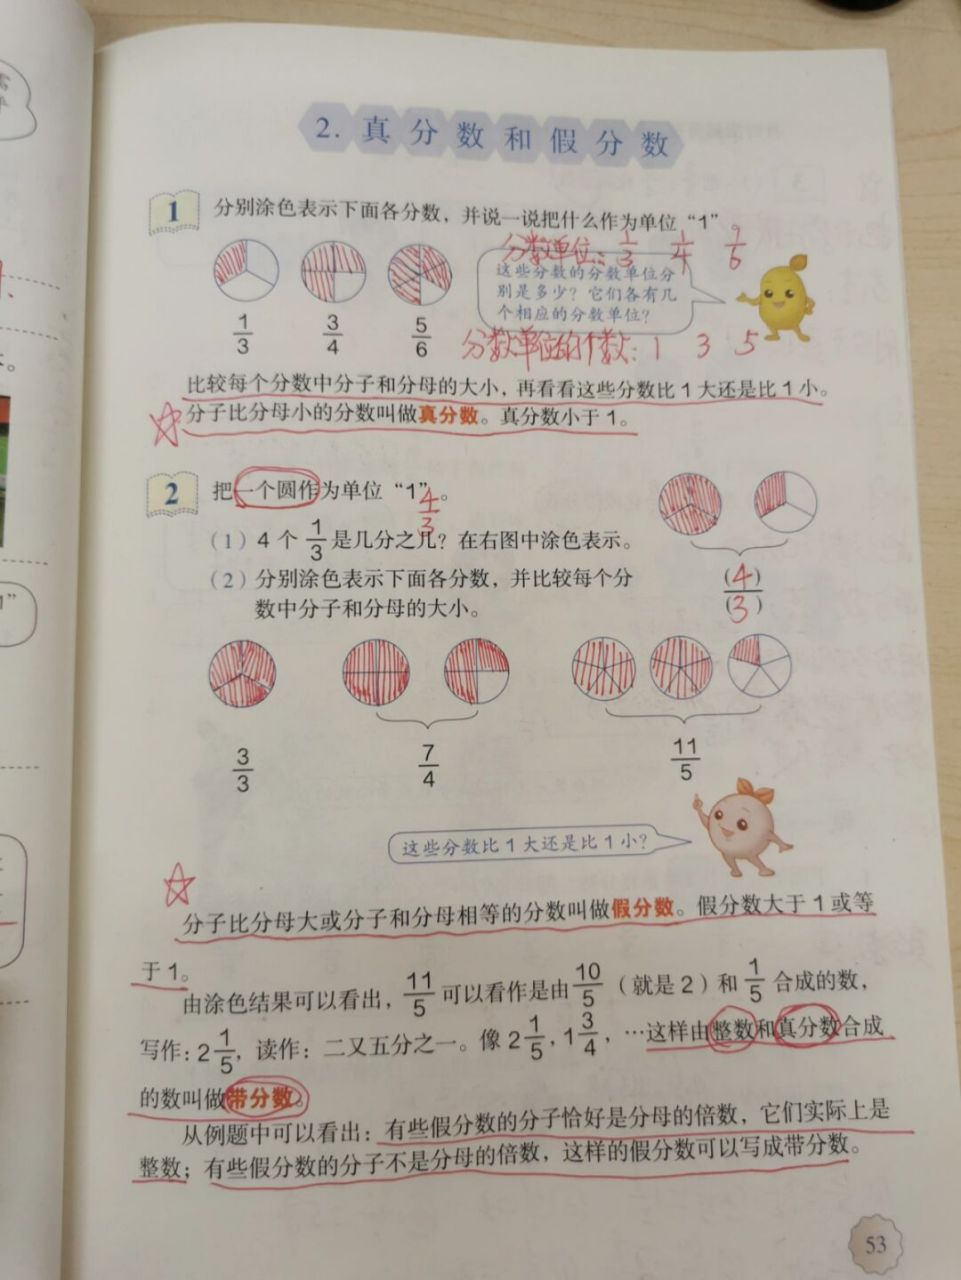 2. 真分数和假分数
1 分别涂色表示下面各分数，并说一说把什么作为单位“1”
分数单位： 1/3 1/4
这些分数的分数单位分
别是多少？它们各有几
个相应的分数单位？
1/3 3/4 5/6
分数单位的个数：1 3 5
比较每个分数中分子和分母的大小，再看看这些分数比1大还是比1小。
分子比分母小的分数叫做真分数。真分数小于1。
2 把一个圆作为单位“1”。
4/3
（1）4个1/3是几分之几？在右图中涂色表示。
(4)/(3)
（2）分别涂色表示下面各分数，并比较每个分
数中分子和分母的大小。
3/3 7/4 11/5
这些分数比1大还是比1小？
分子比分母大或分子和分母相等的分数叫做假分数。假分数大于1或等
于1。
由涂色结果可以看出，11/5可以看作是由10/5（就是2）和1/5合成的数，
写作：2 1/5，读作：二又五分之一。像2 1/5，1 3/4，…这样由整数和真分数合成
的数叫做带分数。
从例题中可以看出：有些假分数的分子恰好是分母的倍数，它们实际上是
整数；有些假分数的分子不是分母的倍数，这样的假分数可以写成带分数。
53